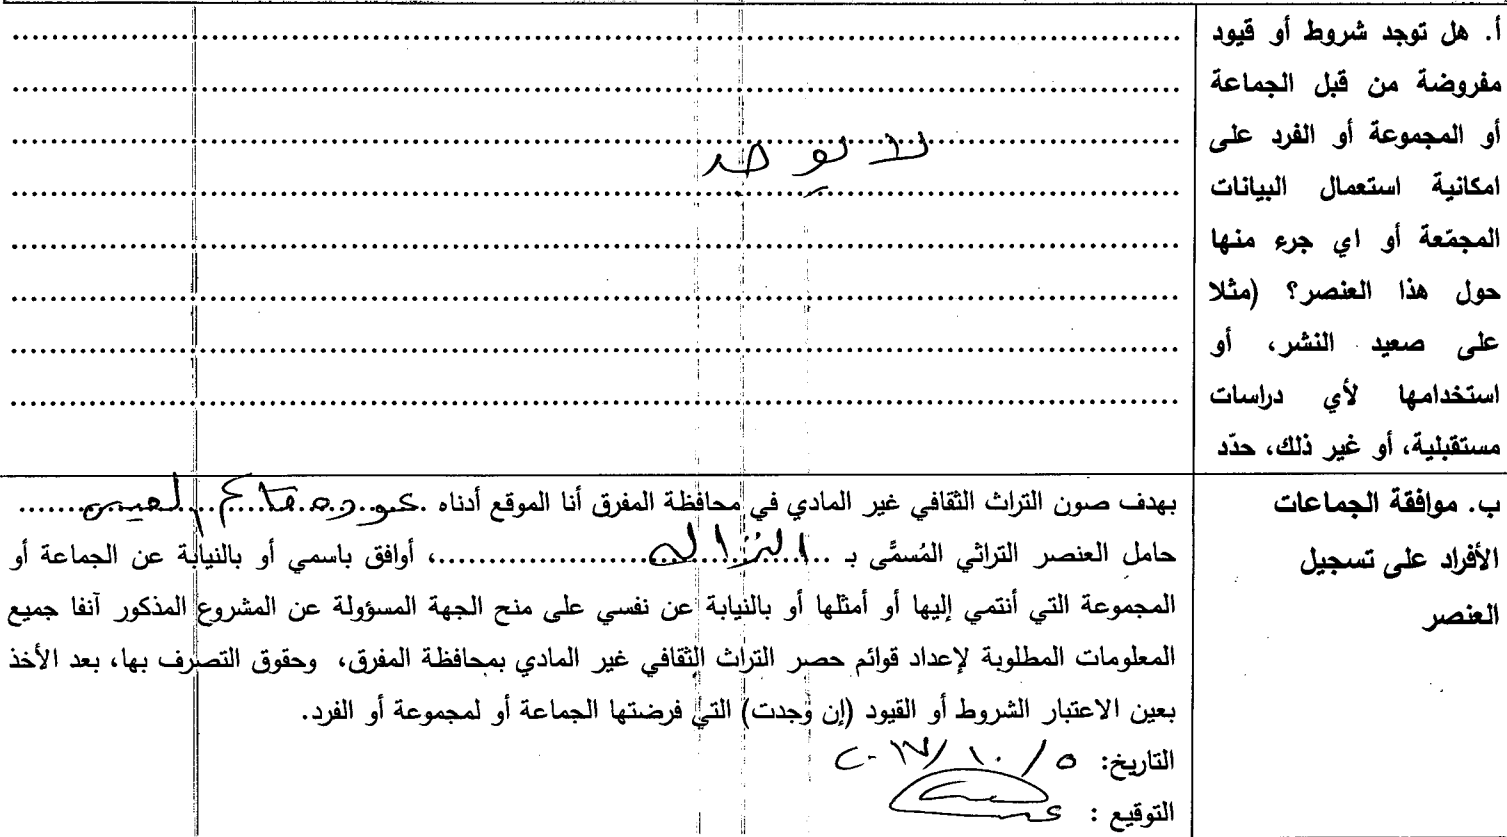 أ. هل توجد شروط أو قيود
مفروضة من قبل الجماعة
أو المجموعة أو الفرد على
امكانية استعمال البيانات
المجمّعة أو اي جرء منها
حول هذا العنصر؟ (مثلا
على صعيد النشر، أو
استخدامها لأي دراسات
مستقبلية، أو غير ذلك، حدّد
لا يوجد
ب. موافقة الجماعات
الأفراد على تسجيل
العنصر
بهدف صون التراث الثقافي غير المادي في محافظة المفرق أنا الموقع أدناه عوده
حامل العنصر التراثي المُسمَّى بـ ......................، أوافق باسمي أو بالنيابة عن الجماعة أو
المجموعة التي أنتمي إليها أو أمثلها أو بالنيابة عن نفسي على منح الجهة المسؤولة عن المشروع المذكور آنفا جميع
المعلومات المطلوبة لإعداد قوائم حصر التراث الثقافي غير المادي بمحافظة المفرق، وحقوق التصرف بها، بعد الأخذ
بعين الاعتبار الشروط أو القيود (إن وجدت) التي فرضتها الجماعة أو لمجموعة أو الفرد.
التاريخ: ٥ / ١٠ / ٢٠١٧
التوقيع :